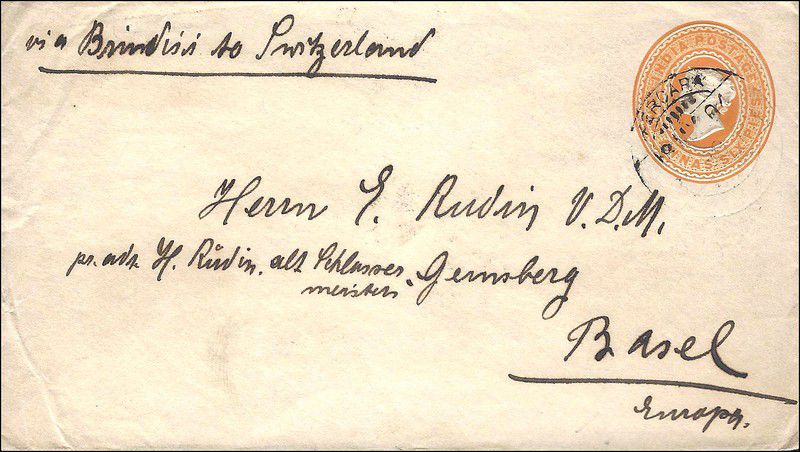 via Brindisi to Switzerland
INDIA POSTAGE
ANNAS SIX PIES
MERCARA
Herrn E. Rudin V.D.M.
pr. adr. H. Rudin, alt Schlosser
meister. Gemsberg
Basel
Europa.